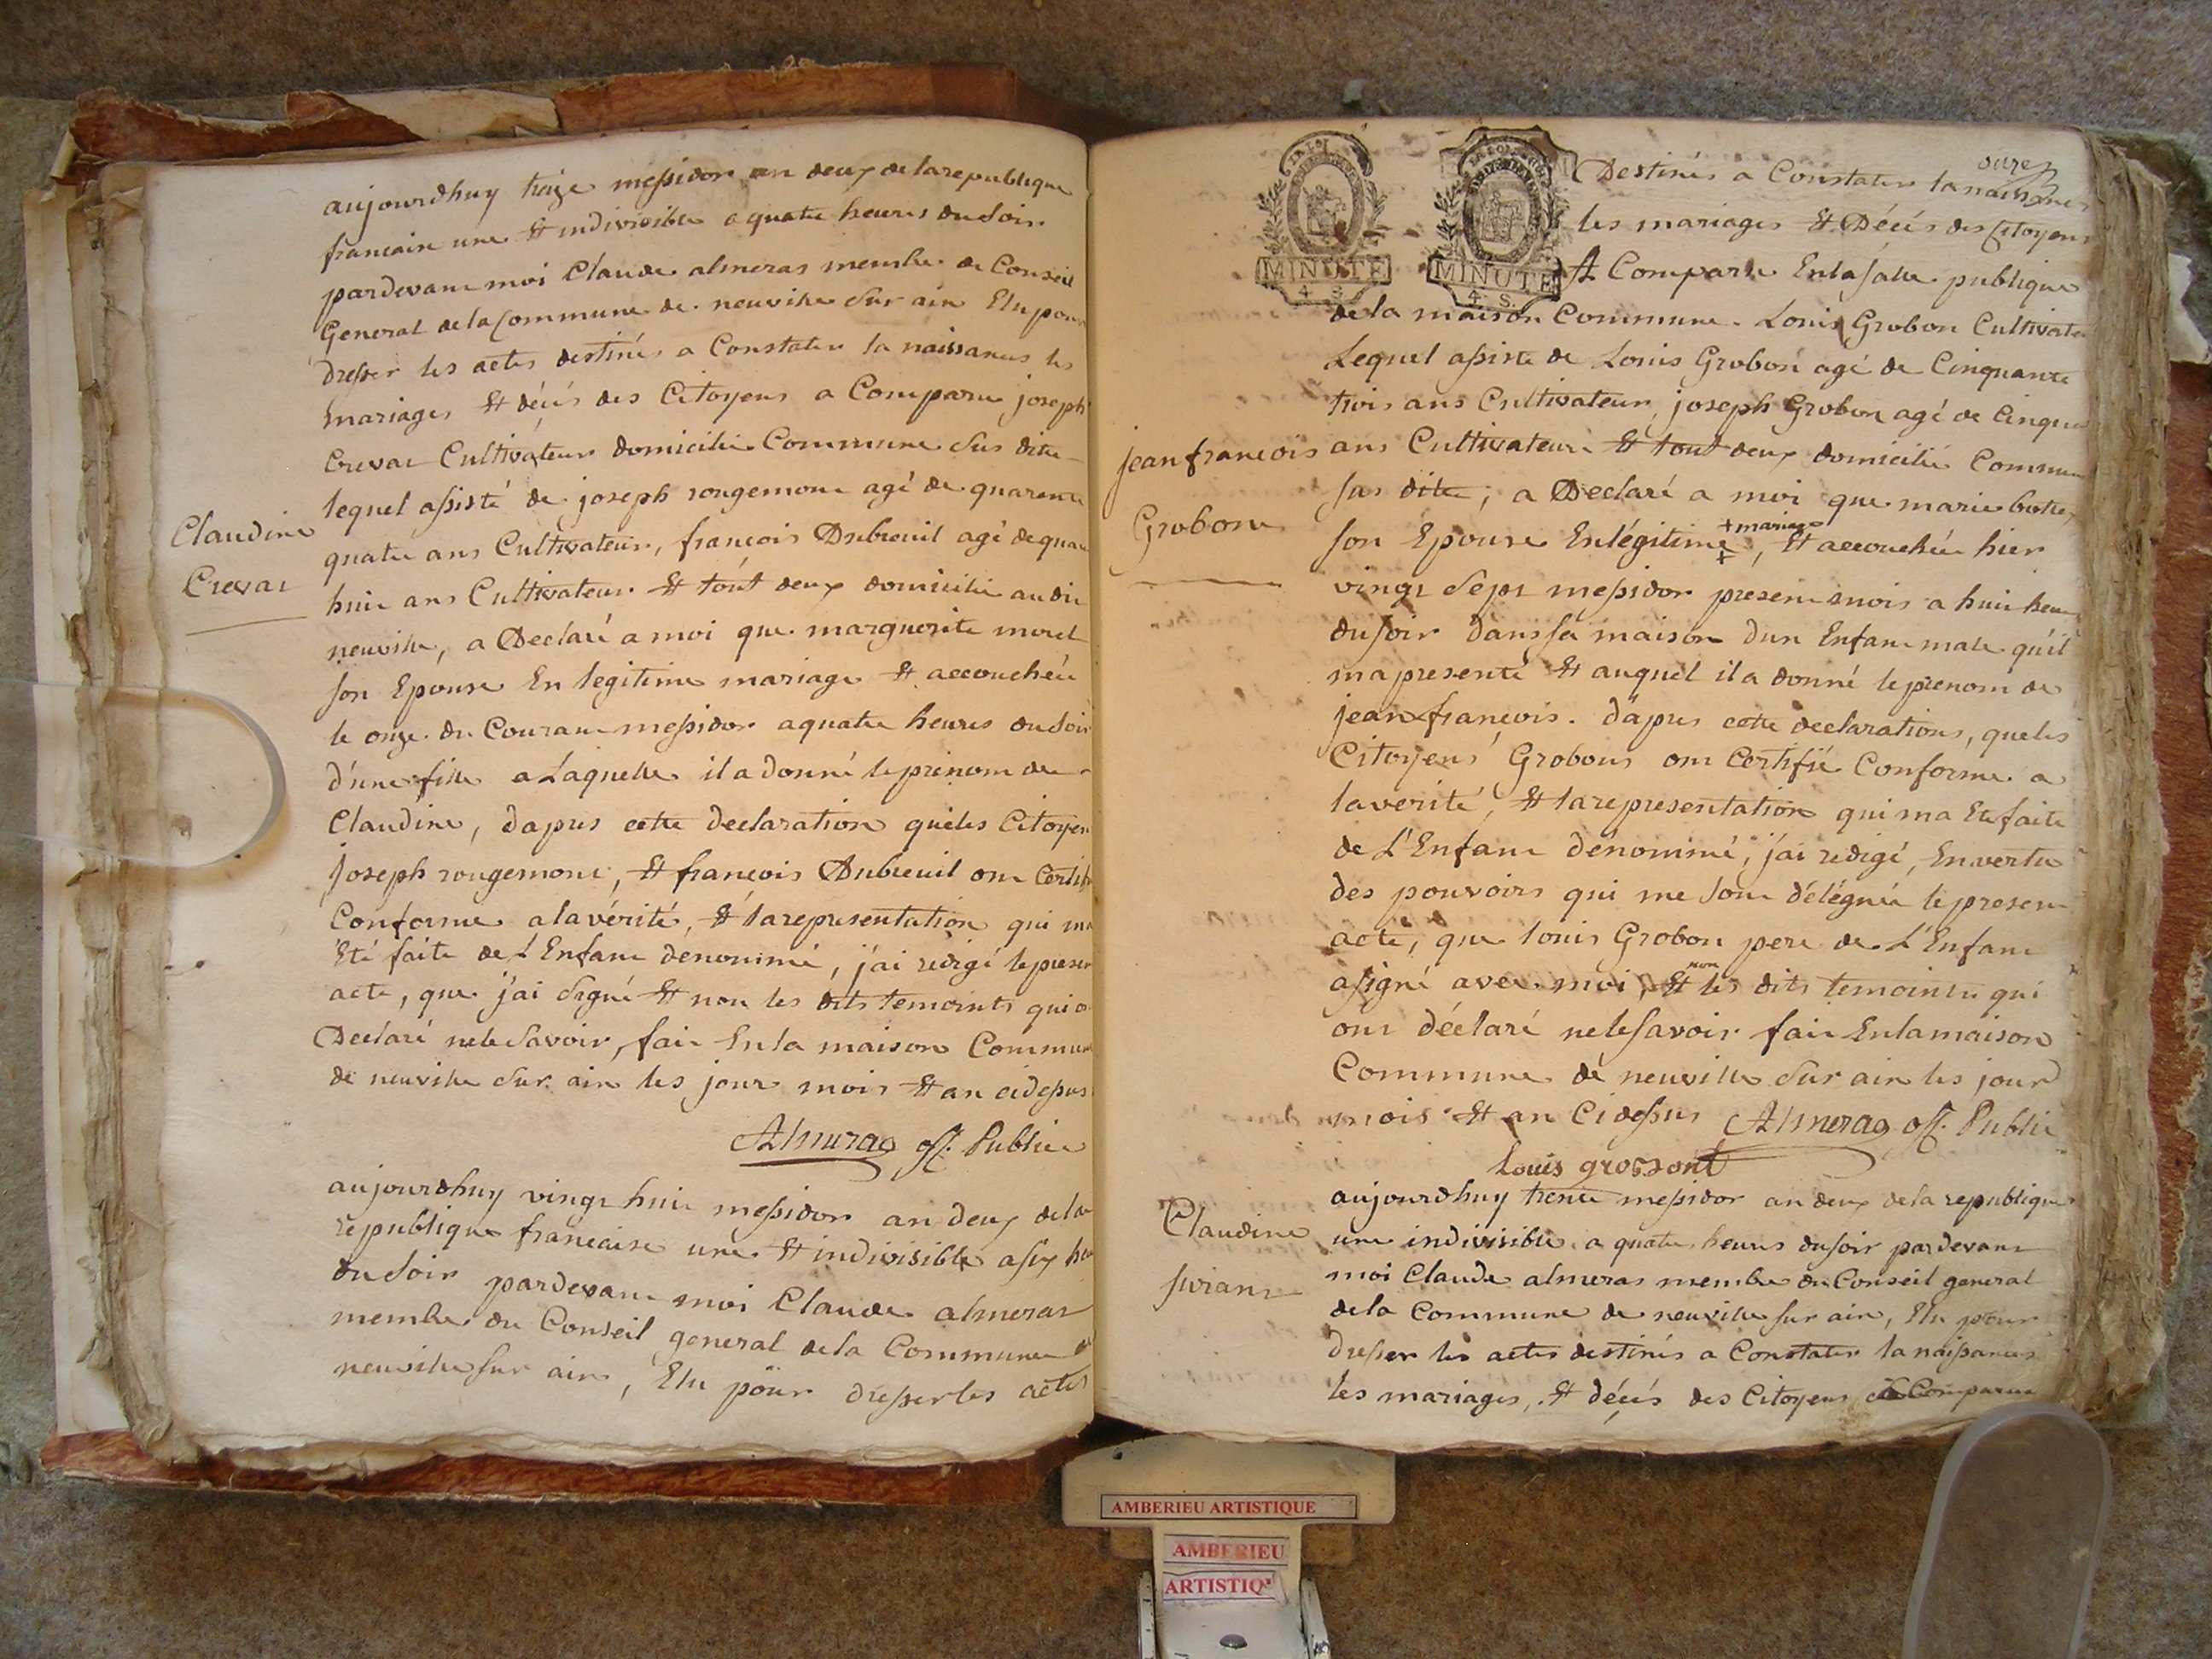 aujourdhuy treize messidor an deux de la republique
francaise une Et indivisible a quatre heures du Soir
pardevant moi Claude almeras membre de Conseil
General de la Commune de neuville Sur ain Elu pour
dresser les actes destinés a Constater la naissances les
mariages Et décés des Citoyens a Comparu joseph
Crevat Cultivateur domicilié Commune Sus dite
lequel assisté de joseph rougemont agé de quarente
quatre ans Cultivateur, francois Dubreuil agé de quar
huit ans Cultivateur Et tout deux domicilié au dit
neuville, a Declaré a moi que marguerite morel
son Epouse En legitime mariage Et accouchée
le onze du Courant messidor a quatre heures du Soir
d'une fille a Laquelle il a donné le prenom de
Claudine, dapres cette declaration que les Citoyen
joseph rougemont, Et francois Dubreuil ont Certifi
Conforme a la vérité, Et la representation qui ma
Eté faite de L'Enfant denommé, j'ai redigé le presen
acte, que j'ai Signé Et non les dits temoints qui o
Declaré ne le Savoir, fait En la maison Commun
de neuville Sur ain les jour mois Et an ci dessus
Almeras off. Public
Claudine
Crevat
aujourdhuy vingt huit messidor an deux de la
republique francaise une Et indivisible a six heu
du Soir pardevant moi Claude almeras
membre du Conseil general de la Commune de
neuville sur ain, Elu pour dresser les actes
onze
MINUTE
4 S.
MINUTE
4 S.
Destinés a Constater la naissances
les mariages Et Décés des Citoyens
A Comparu En la salle publique
de la maison Commune Louis Grobon Cultivate
Lequel assisté de Louis Grobon agé de Cinquante
trois ans Cultivateur, joseph Grobon agé de Cinqua
ans Cultivateur Et tout deux domicilié Commun
sus dite, a Declaré a moi que marie
son Epouse En légitime + mariage +, Et accouchée hier
vingt Sept messidor present mois a huit heu
du soir dans sa maison d'un Enfant male qu'il
ma presenté Et auquel il a donné le prenom de
jean francois. dapres cette declarations, que les
Citoyens Grobons ont Certifié Conforme a
la verité, Et la representation qui ma Ete faite
de L'Enfant dénommé, j'ai redigé, En vertu
des pouvoirs qui me Sont délégués le present
acte, que Louis Grobon pere de L'Enfant
a signé avec moi, Et non les dits temoints qui
ont déclaré ne le savoir fait En la maison
Commune de neuville Sur ain les jour
mois Et an Ci dessus Almeras off. Public
Louis grobont
jean francois
Grobon
aujourdhuy trente messidor an deux de la republique
une indivisible a quatre heures du soir pardevant
moi Claude almeras membre du Conseil general
de la Commune de neuville sur ain, Elu pour
dresser les actes destinés a Constater la naissances
les mariages, Et décés des Citoyens a Comparu
Claudine
AMBERIEU ARTISTIQUE
AMBERIEU
ARTISTIQ